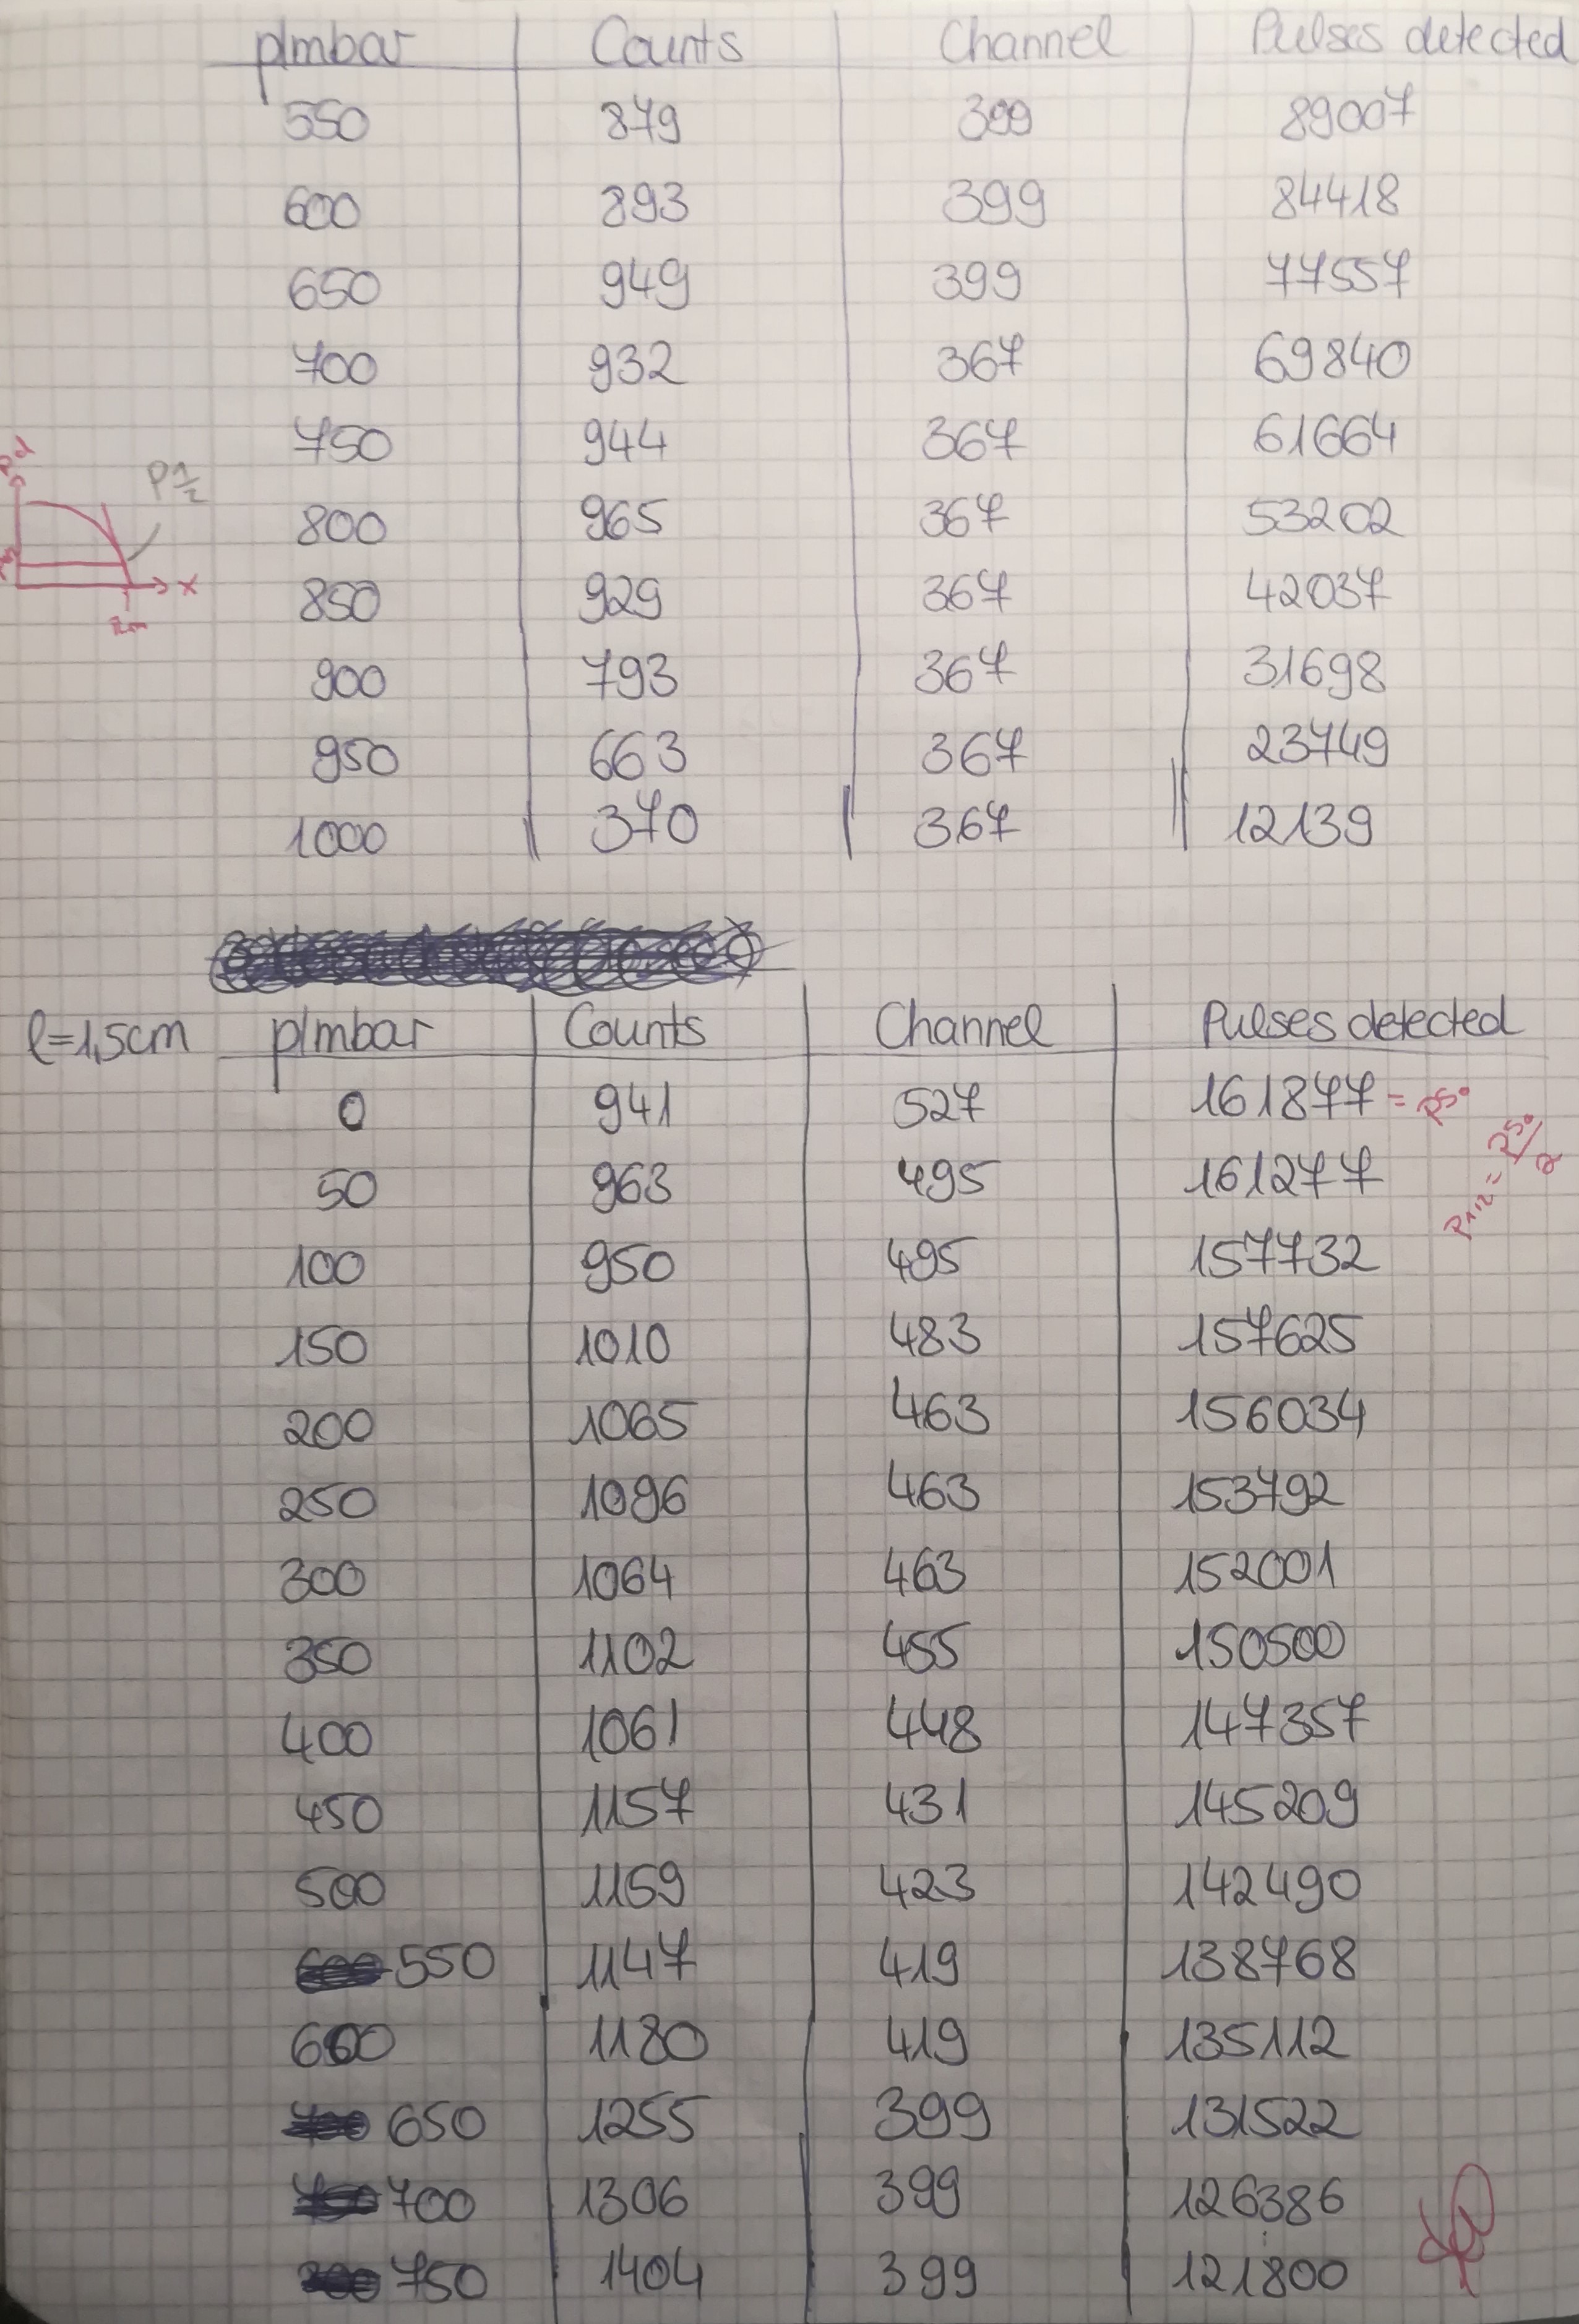 p/mbar Counts Channel Pulses detected
550 879 399 89007
600 893 399 84418
650 949 399 77557
700 932 367 69840
750 944 367 61664
P1/2
800 965 367 53202
x
850 929 367 42037
900 793 367 31698
950 663 367 23749
1000 370 367 12139
l=1,5cm p/mbar Counts Channel Pulses detected
0 941 527 161877 = PS0
50 963 495 161277 P1/2 = PS0/2
100 950 495 157732
150 1010 483 157625
200 1065 463 156034
250 1096 463 153792
300 1064 463 152001
350 1102 455 150500
400 1061 448 147357
450 1157 431 145209
500 1159 423 142490
550 1147 419 138768
600 1180 419 135112
650 1255 399 131522
700 1306 399 126386
750 1404 399 121800